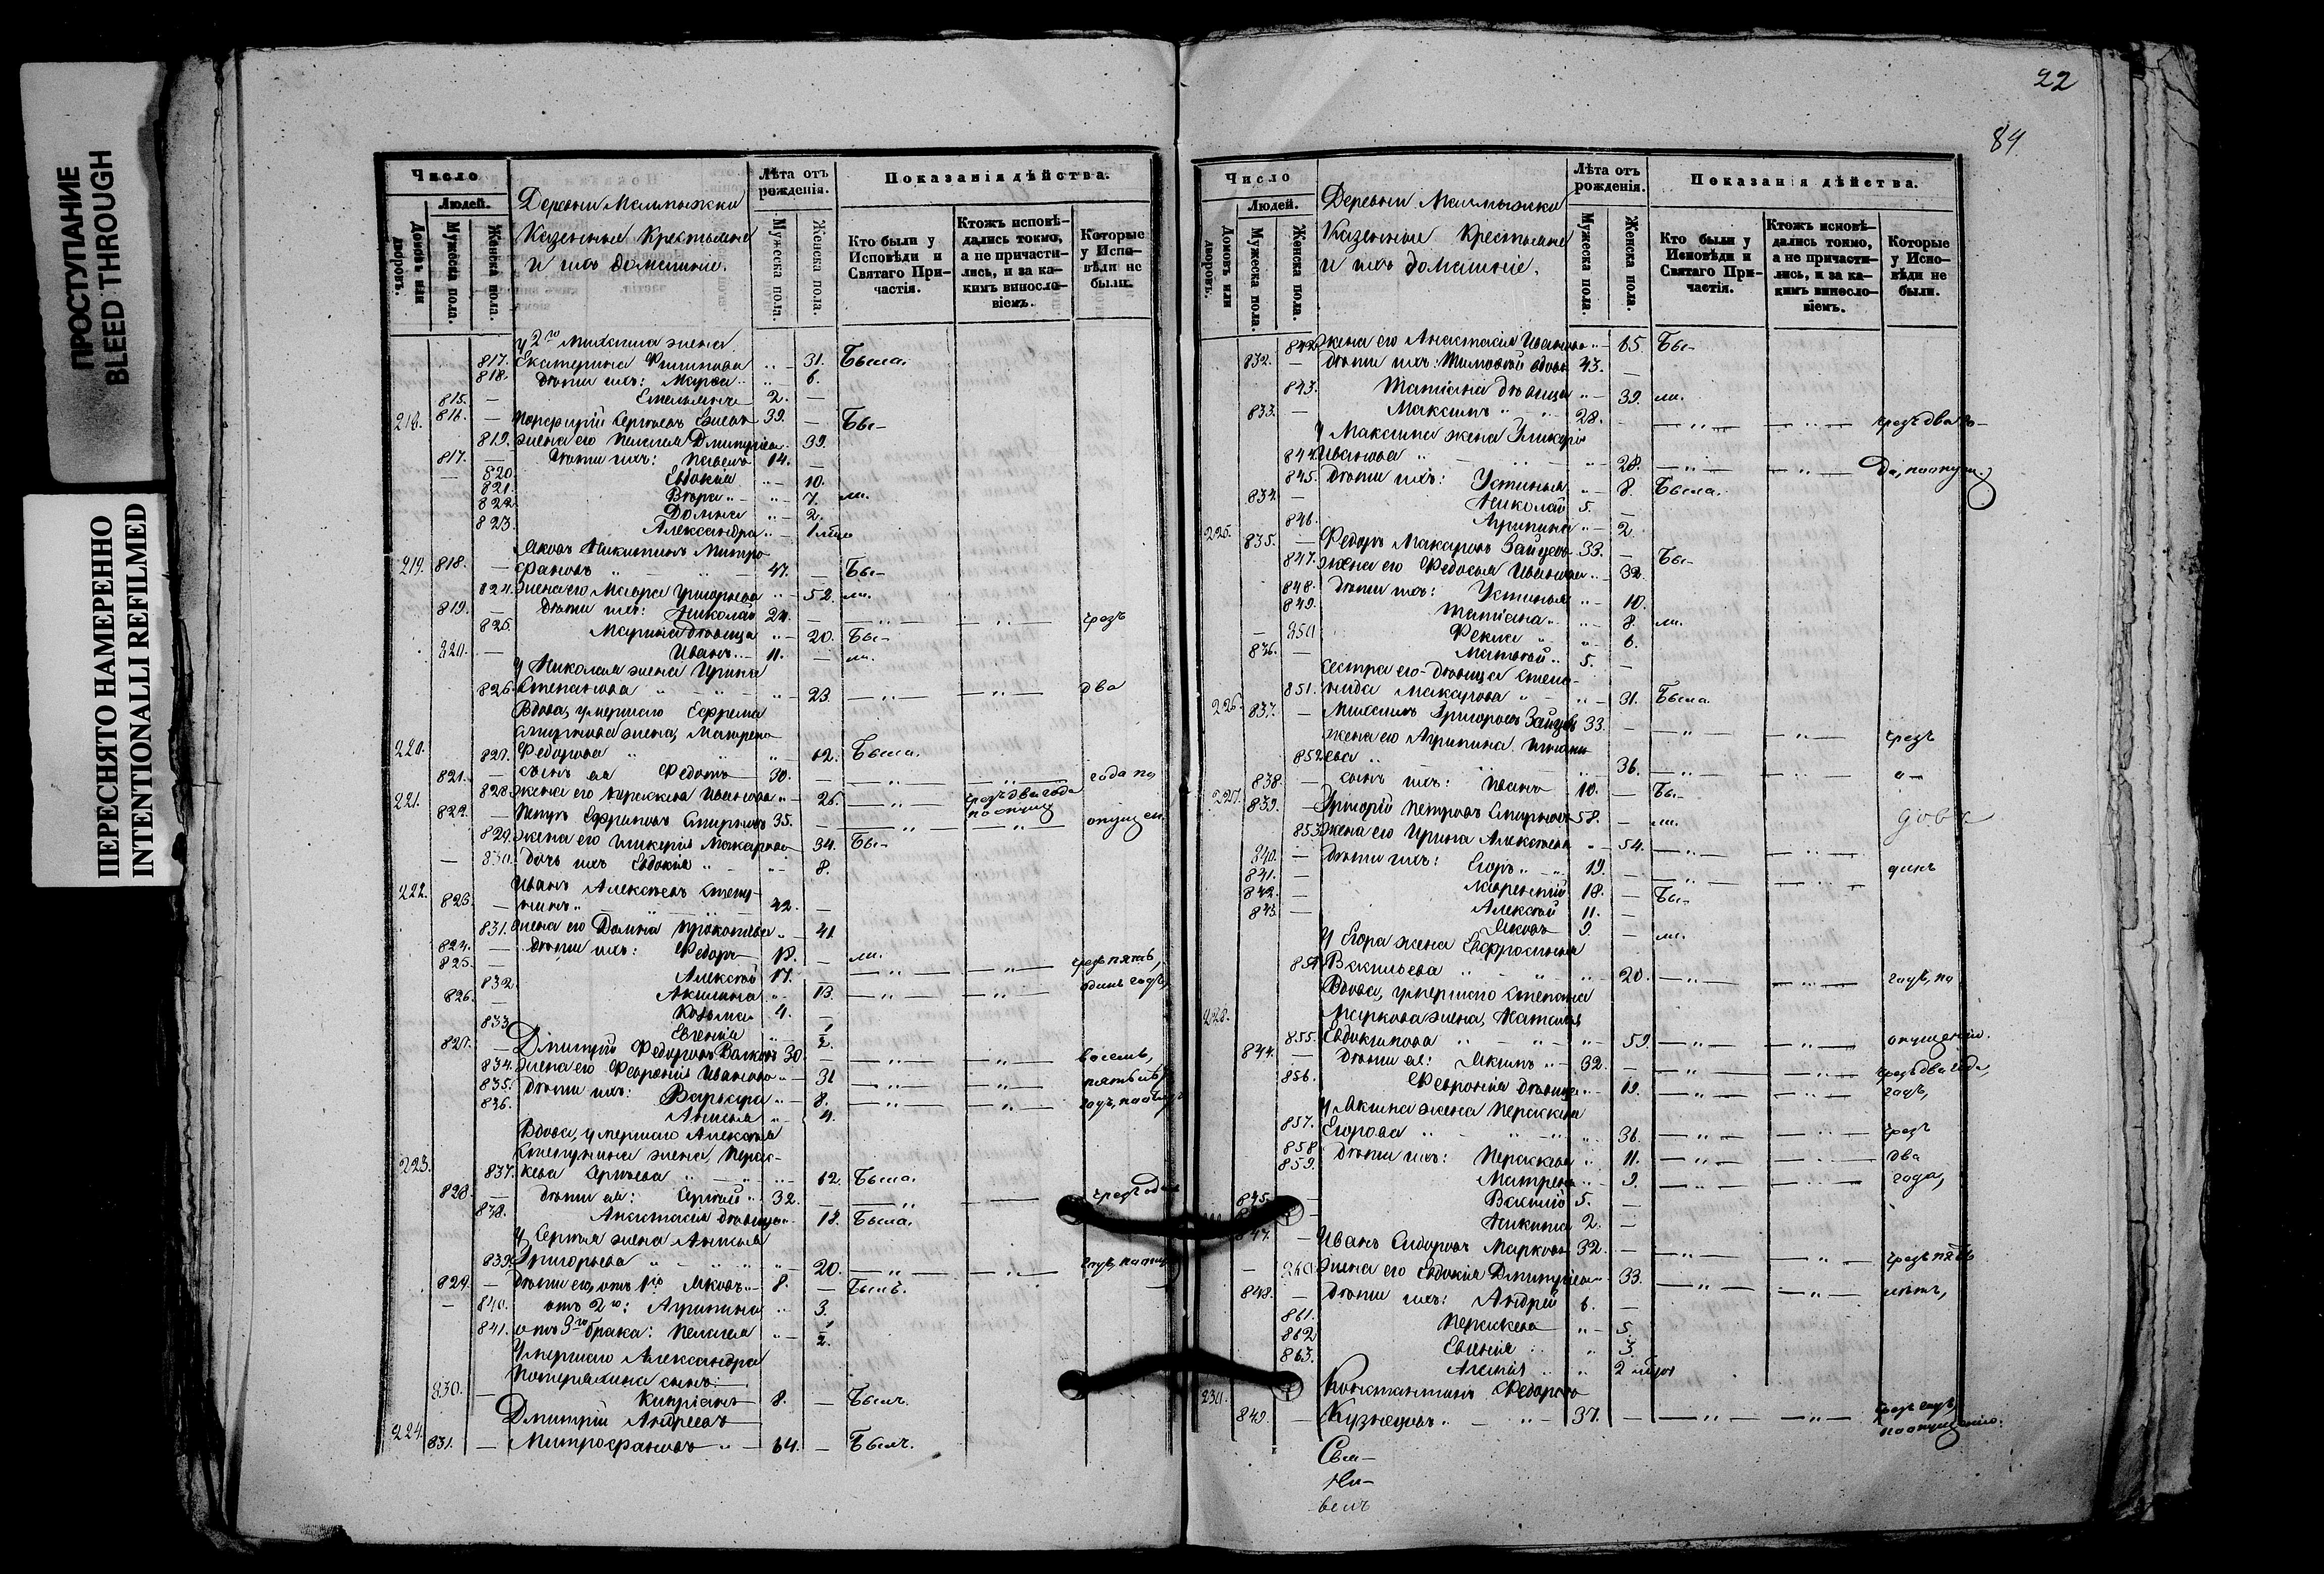 ПРОСТУПАНИЕ
BLEED THROUGH
ПЕРЕСНЯТО НАМЕРЕННО
INTENTIONALLI REFILMED
Число
Людей.
Домовъ или дворовъ.
Мужеска пола.
Женска пола.
Деревни Малмыжки
Казенные Крестьяне
и ихъ домашніе.
Лѣта отъ рожденія.
Мужеска пола.
Женска пола.
Показанія дѣйства.
Кто были у Исповѣди и Святаго Причастія.
Ктожъ исповѣдались токмо, а не причастились, и за какимъ винословіемъ.
Которые у Исповѣди не были.
у 2го Михаила жена
817. Екатерина Филипова " — 31. Была.
818. дѣти ихъ: Марѳа " 6.
815. — Емельянъ 2. —
218. 816. — Порфирій Сергѣевъ 39. — Бы-
819. жена его Пелагея Дмитріева 39.
817. — дѣти ихъ: Павелъ 14. —
820. Евдокія " — 10.
821. Вѣра " — 7. ли.
822. Домна " — 2.
823. Александра " —
Яковъ Никитинъ Митро-
219. 818. — фановъ " — 47. — Бы-
824. жена его Мавра Григорьева " — 52. ли.
819. — дѣти ихъ: Николай 24. — — " — — " — чрезъ
825. Марина дѣвица " — 20. Бы-
820. — Иванъ " — 11. — ли.
у Николая жена Ирина
826. Степанова " — " — 23. — " — — " — два
Вдова, умершаго Ефрема
Смирнова жена, Матрена
220. 827. Федорова " " 62. Была.
821. — сынъ ея Федотъ 30. — — " — — " — года по
828. жена его Параскева Иванова " — 26. — " — чрезъ два года
221. 822. — Петръ Ефремовъ Смирновъ 35. — — " — — " — опущен.
829. жена его Гликерія Макарова 34. Бы-
— 830. дочь ихъ Евдокія " — " — 8.
Иванъ Алексѣевъ Степу-
222. 823. — нинъ " — 42. —
831. жена его Домна Прокопьева " 41.
824. — дѣти ихъ: Федоръ — ли.
825. — Алексѣй 17. — — " — — " — чрезъ пять,
832. Акилина " 13. — " — — " — одинъ годъ,
826. — Козьма 4. —
833. Евгенія " 1/2.
827. — Дмитрій Федоровъ Волковъ 30. — — " — — " — восемь,
834. жена его Февронія Иванова " — 31 — " — — " —
835. дѣти ихъ: Варвара " — 8. — " — — " —
836. Анисья " — 4.
Вдова, умершаго Алексѣя
Степунина жена, Парас-
223. 837. кева Сергѣева " — 62. Была.
828. — дѣти ея: Сергѣй " 32. — — " —
838. Анастасія дѣвица " 18. Была.
У Сергѣя жена Анисья
839. Григорьева " " — 20. — " — — " —
829. — дѣти его, отъ 1го Яковъ " — 8. — Былъ.
— 840. отъ 2го: Агрипина " 3.
841. отъ 3го брака: Пелагея " — 1/2.
Умершаго Александра
сынъ:
830. — Кипріанъ 8. — Былъ.
Дмитрій Андреевъ
224. 831. — Митрофановъ " — 64. — Былъ.
22
84
Число
Людей.
Домовъ или дворовъ.
Мужеска пола.
Женска пола.
Деревни Малмыжки
Казенные Крестьяне
и ихъ домашніе.
Лѣта отъ рожденія.
Мужеска пола.
Женска пола.
Показанія дѣйства.
Кто были у Исповѣди и Святаго Причастія.
Ктожъ исповѣдались токмо, а не причастились, и за какимъ винословіемъ.
Которые у Исповѣди не были.
842. жена его Анастасія Иванова " — 65. Бы-
832. — дѣти ихъ: Тимоѳей вдовъ 43. —
843. Татіана дѣвица " — 39. ли.
833. — Максимъ " 28. — — " — — " — чрезъ два го-
У Максима жена Гликерія
844. Иванова " — " — 28. — " — — " — да, по опущ.
845. дѣти ихъ: Устинья " — 8. Была.
834. — Николай 5. —
846. Агрипина " — 2.
225. 835. — Федоръ Макаровъ Зайцевъ 33. — Бы-
847. жена его Федосья Иванова " — 32.
848. дѣти ихъ: Устинья " — 10.
849. Татіана " — " 8. ли.
— 850. Фекла " " 6.
836. — Матвѣй " 5. —
сестра его дѣвица Степа-
851. нида Макарова " — " — 31. Была.
226. 837. — Григоровъ Зайцевъ 33. — — " — — " — чрезъ
жена его Агрипина
852. ева " " — 36. — " — — " — о-
838. — сынъ ихъ: Иванъ 10. — Бы-
227. 839. — Григорій Петровъ Смирновъ 58. — ли.
853. жена его Ирина Алексѣева " — 54. — " — — " —
840. — дѣти ихъ: Егоръ " — 19. — — " — — " — динъ
841. — Лаврентій 18. — Бы-
842. — Алексѣй 11. —
843. — Яковъ 9. — ли.
У Егора жена Евфросинья
854. Васильева " — " — 20. — " — — " — годъ, по
Вдова, умершаго Степана
228. Маркова жена, Наталья
855. Евдокимова " — " — 59. — " — — " — опущенію.
844. — дѣти ея: Акимъ " — 32. — — " — — " — чрезъ два года,
856. Февронія дѣвица " — 19. — " — — " — годъ,
У Акима жена Параскева
857. Егорова " — " — 36. — " — — " — чрезъ
858. дѣти ихъ: Параскева " 11. — " — — " — два
859. Матрена " — 9. — " — — " — года,
845. — Василій 5. —
— Никита 2. —
847. — Иванъ Сидоровъ Марковъ 32. — — " — — " — чрезъ пять
— 860. жена его Евдокія Дмитріева — 33. — " — — " — лѣтъ,
848. — дѣти ихъ: Андрей 6. —
861. Параскева " — 5.
862. Евгенія " 3.
863. " 2
Константинъ Федоровъ
230. 849. — Кузнецовъ " — " — 37. — — " — — " — чрезъ годъ, по опущенію.